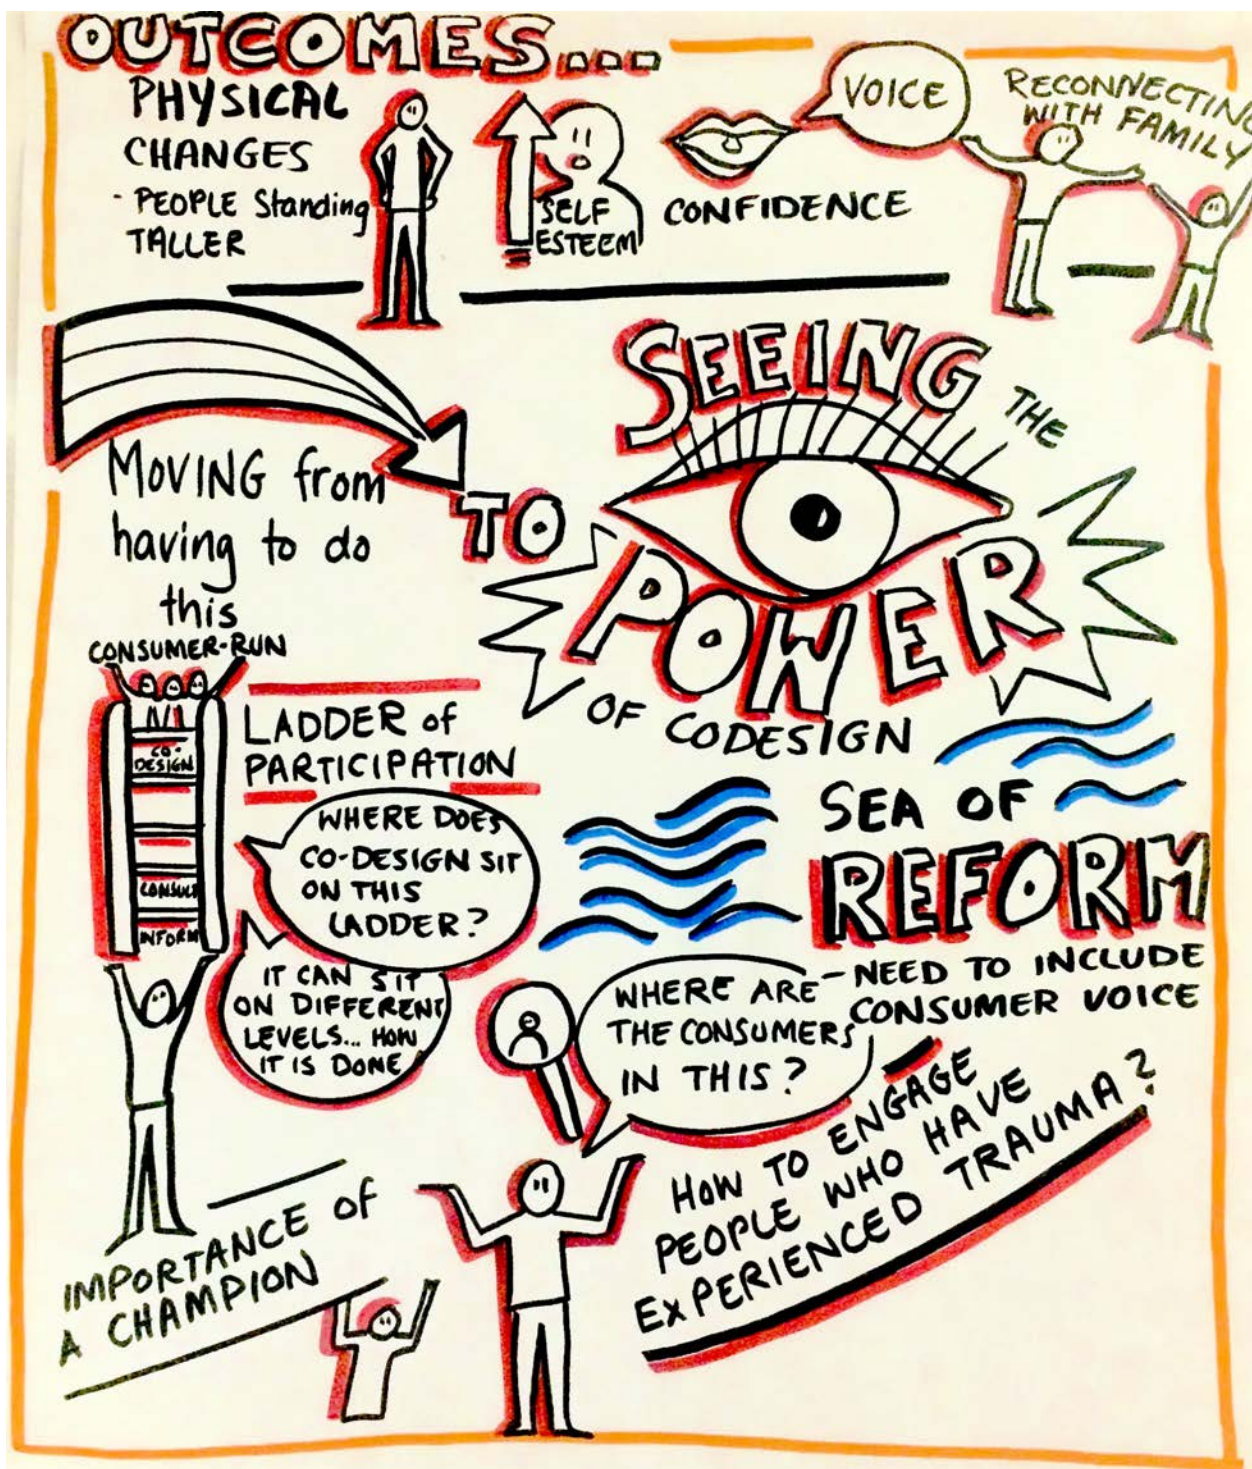 OUTCOMES...
PHYSICAL
CHANGES
- PEOPLE Standing
TALLER
SELF
ESTEEM
VOICE
CONFIDENCE
RECONNECTING
WITH FAMILY
MOVING from
having to do
this
TO
SEEING
THE
POWER
OF CODESIGN
CONSUMER-RUN
CO-
DESIGN
CONSULT
INFORM
LADDER of
PARTICIPATION
WHERE DOES
CO-DESIGN SIT
ON THIS
LADDER?
IT CAN SIT
ON DIFFERENT
LEVELS... HOW
IT IS DONE
SEA OF
REFORM
- NEED TO INCLUDE
CONSUMER VOICE
WHERE ARE
THE CONSUMERS
IN THIS?
HOW TO ENGAGE
PEOPLE WHO HAVE
EXPERIENCED TRAUMA?
IMPORTANCE OF
A CHAMPION